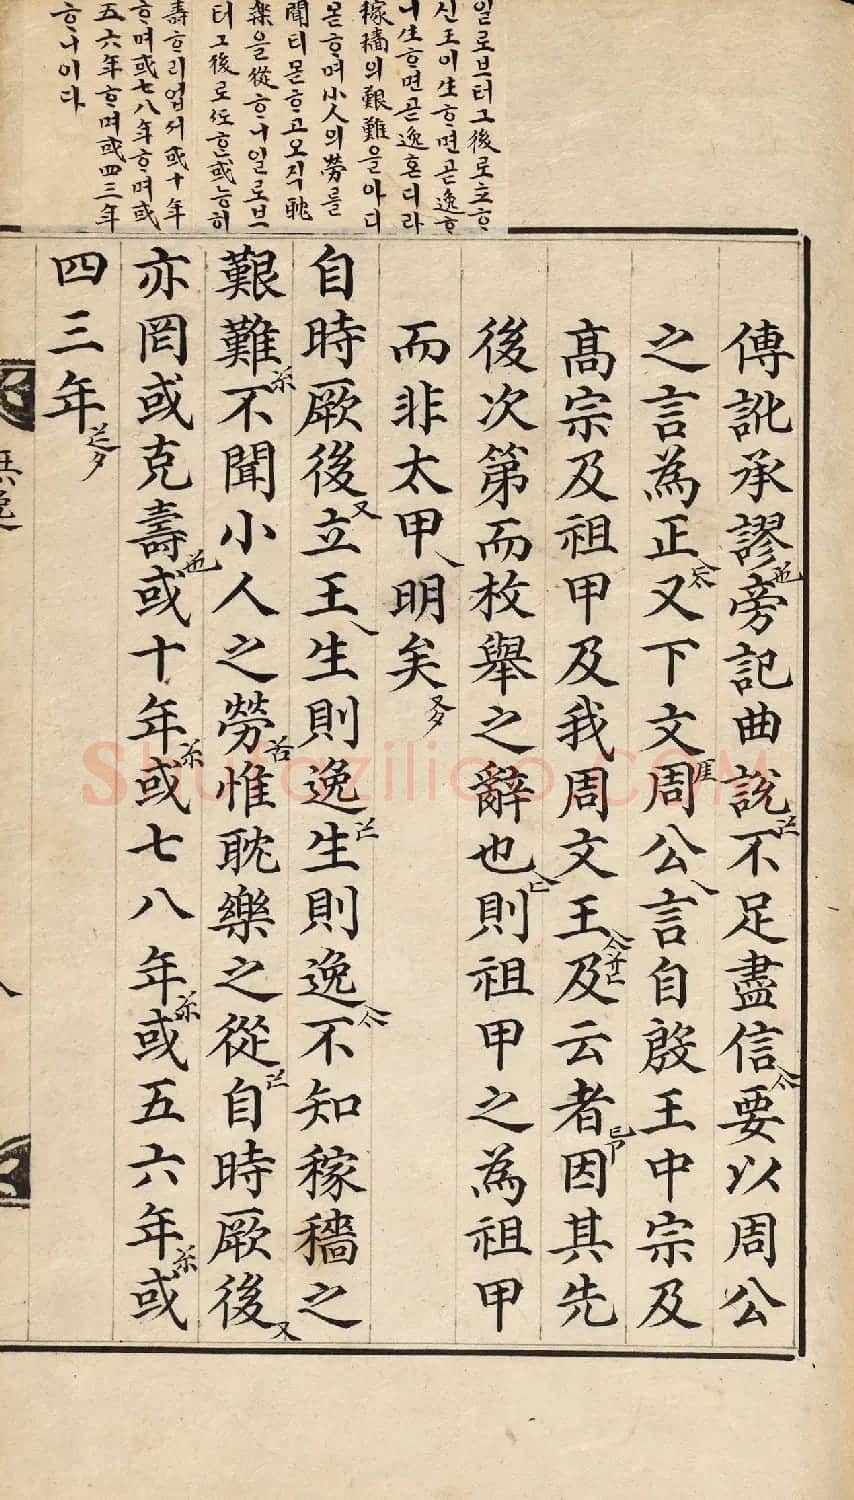 일로브터그後로호
신王이生호면곧逸호
니生호면곧逸혼디라
稼穡의艱難을아디
몯호며小人의勞를
聞티몯호고오직耽
樂을從호니일로브
터그後로或능히
壽호리업서或十年
호며或七八年호며或
五六年호며或四三年
호니이다
傳訛承謬旁記曲說不足盡信要以周公
之言為正又下文周公言自殷王中宗及
高宗及祖甲及我周文王及云者因其先
後次第而枚舉之辭也則祖甲之為祖甲
而非太甲明矣
自時厥後立王生則逸生則逸不知稼穡之
艱難不聞小人之勞惟耽樂之從自時厥後
亦罔或克壽或十年或七八年或五六年或
四三年
無逸
Shufaziliao.COM